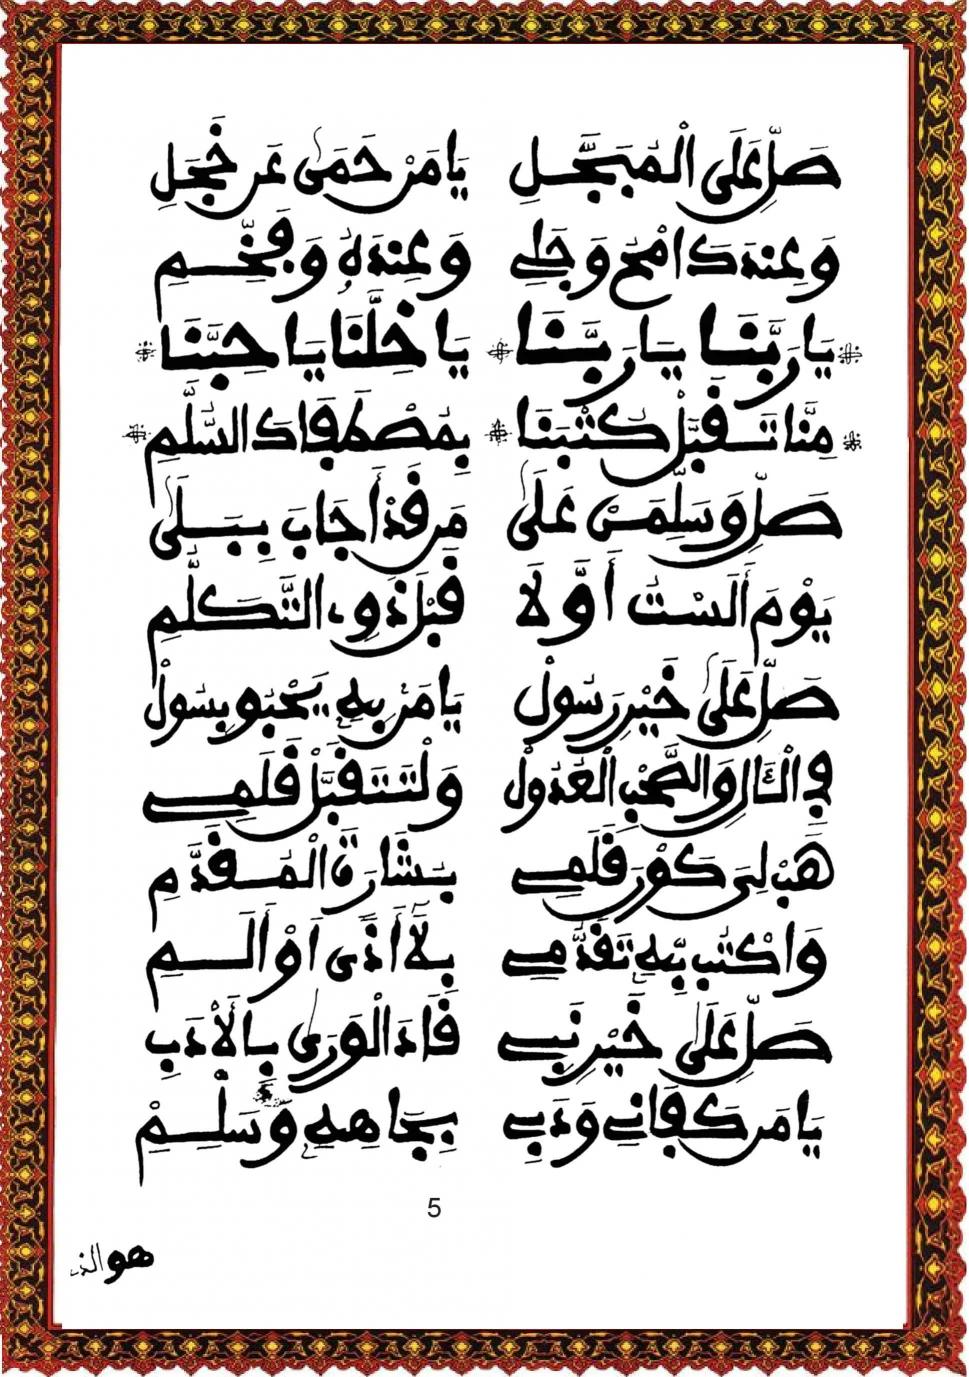 صَلِّ عَلَى الْمُبَجَّلِ يَا مَنْ حَمَى عَنْ خَجَلِ
وَعِنْدَكَ امْحُ وَجَلِي وَعِنْدَهُ وَفَخِّمِ
يَا رَبَّنَا يَا رَبَّنَا يَا خِلَّنَا يَا حِبَّنَا
مِنَّا تَقَبَّلْ كَتْبَنَا بِمُصْطَفًى قَادَ السُّلَّمِ
صَلِّ وَسَلِّمَنْ عَلَى مَنْ قَدْ أَجَابَ بِبَلَى
يَوْمَ أَلَسْتُ أَوَّلَا قَبْلَ ذَوِي التَّكَلُّمِ
صَلِّ عَلَى خَيْرِ رَسُولْ يَا مَنْ بِهِ يَحْبُو بِسُولْ
فِي الْآلِ وَالصَّحْبِ الْعُدُولْ وَلْتَتَقَبَّلْ قَلَمِي
هَبْ لِي كَوْنَ قَلَمِي بِشَارَةَ الْمُقَدَّمِ
وَاكْتُبْ بِهِ تَقَدُّمِي بِلَا أَذًى أَوْ أَلَمِ
صَلِّ عَلَى خَيْرِ نَبِي قَادَ الْوَرَى بِالْأَدَبِ
يَا مَنْ كَفَانِي وَدَبِي بِجَاهِهِ وَسَلِّمْ
5
هو الذ